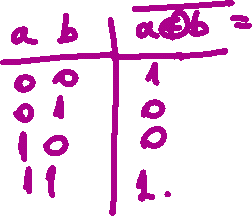 a b a⊕b =
0 0 1
0 1 0
1 0 0
1 1 1.